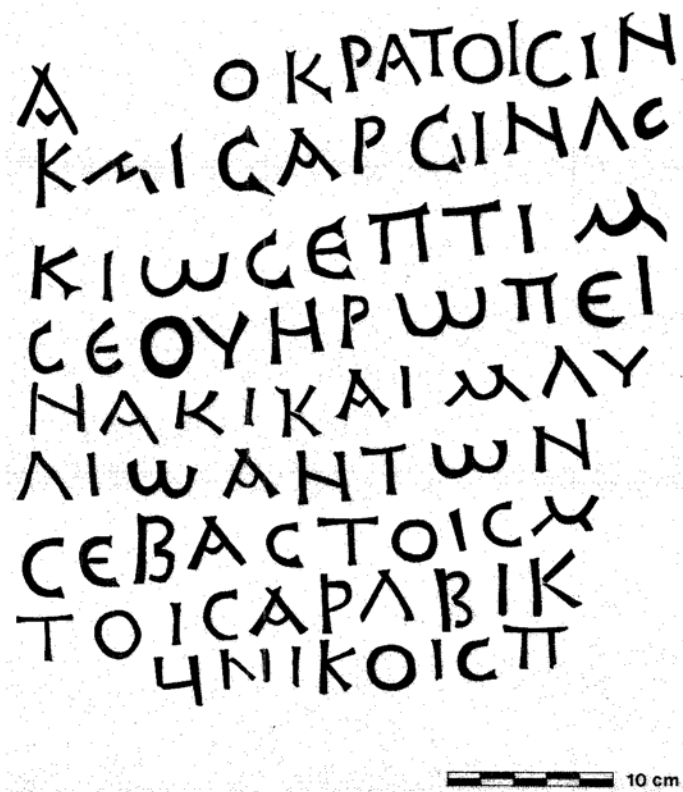 Α ΟΚΡΑΤΟΙϹΙΝ
ΚΑΙϹΑΡϹΙΝΛϹ
ΚΙωϹΕΠΤΙΜ
ϹΕΟΥΗΡωΠΕΙ
ΝΑΚΙΚΑΙΜΛΥ
ΛΙωΑΗΤωΝ
ϹΕΒΑϹΤΟΙϹΜ
ΤΟΙϹΑΡΛΒΙΚ
ЧΝΙΚΟΙϹΠ
10 cm